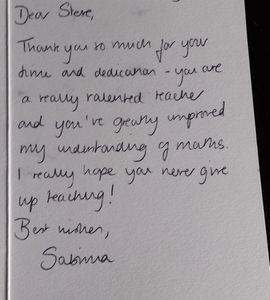 Dear Steve,
Thank you so much for your
time and dedication - you are
a really talented teacher
and you've greatly improved
my understanding of maths.
I really hope you never give
up teaching!
Best wishes,
Sabrina